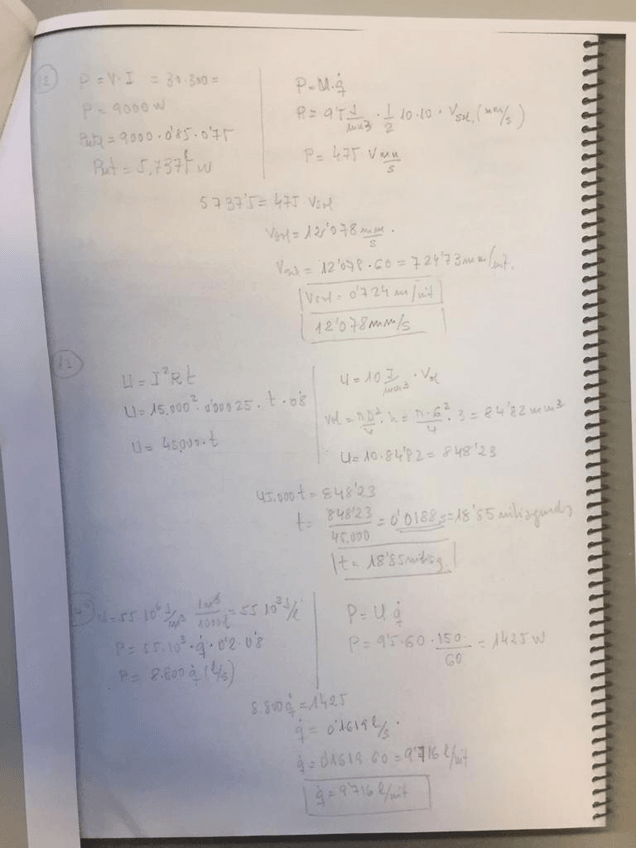 12
P = V·I = 30·300 =
P = 9000 W
Put = 9000·0'85·0'75
Put = 5,737'5 W
P = U·q̇
P = 9'5 J/mm3 · 1/2 10·10 · Vsol (mm/s)
P = 475 V mm/s
5737'5 = 475 Vsol
Vsol = 12'078 mm/s.
Vsol = 12'078·60 = 724'73 mm/mit.
Vsol = 0'724 m/mit
12'078 mm/s
13
U = I²Rt
U = 15,000²·0'00025·t·0'8
U = 45,000·t
U = 10 J/mm3 · Vol
Vol = πD²/4 · h = π·6²/4 · 3 = 84'82 mm3
U = 10·84'82 = 848'23
45.000t = 848'23
t = 848'23/45.000 = 0'0188 s = 18'85 milisegundos
t = 18'85 miliseg
U = 55·10⁶ J/m3 1m3/1000l = 55·10³ J/l
P = 55·10³·q̇·0'2·0'8
P = 8.800 q̇ (l/s)
P = U q̇
P = 9'5·60·150/60 = 1425 W
8.800 q̇ = 1425
q̇ = 0'1619 l/s.
q̇ = 0'1619·60 = 9'716 l/mit
q̇ = 9'716 l/mit